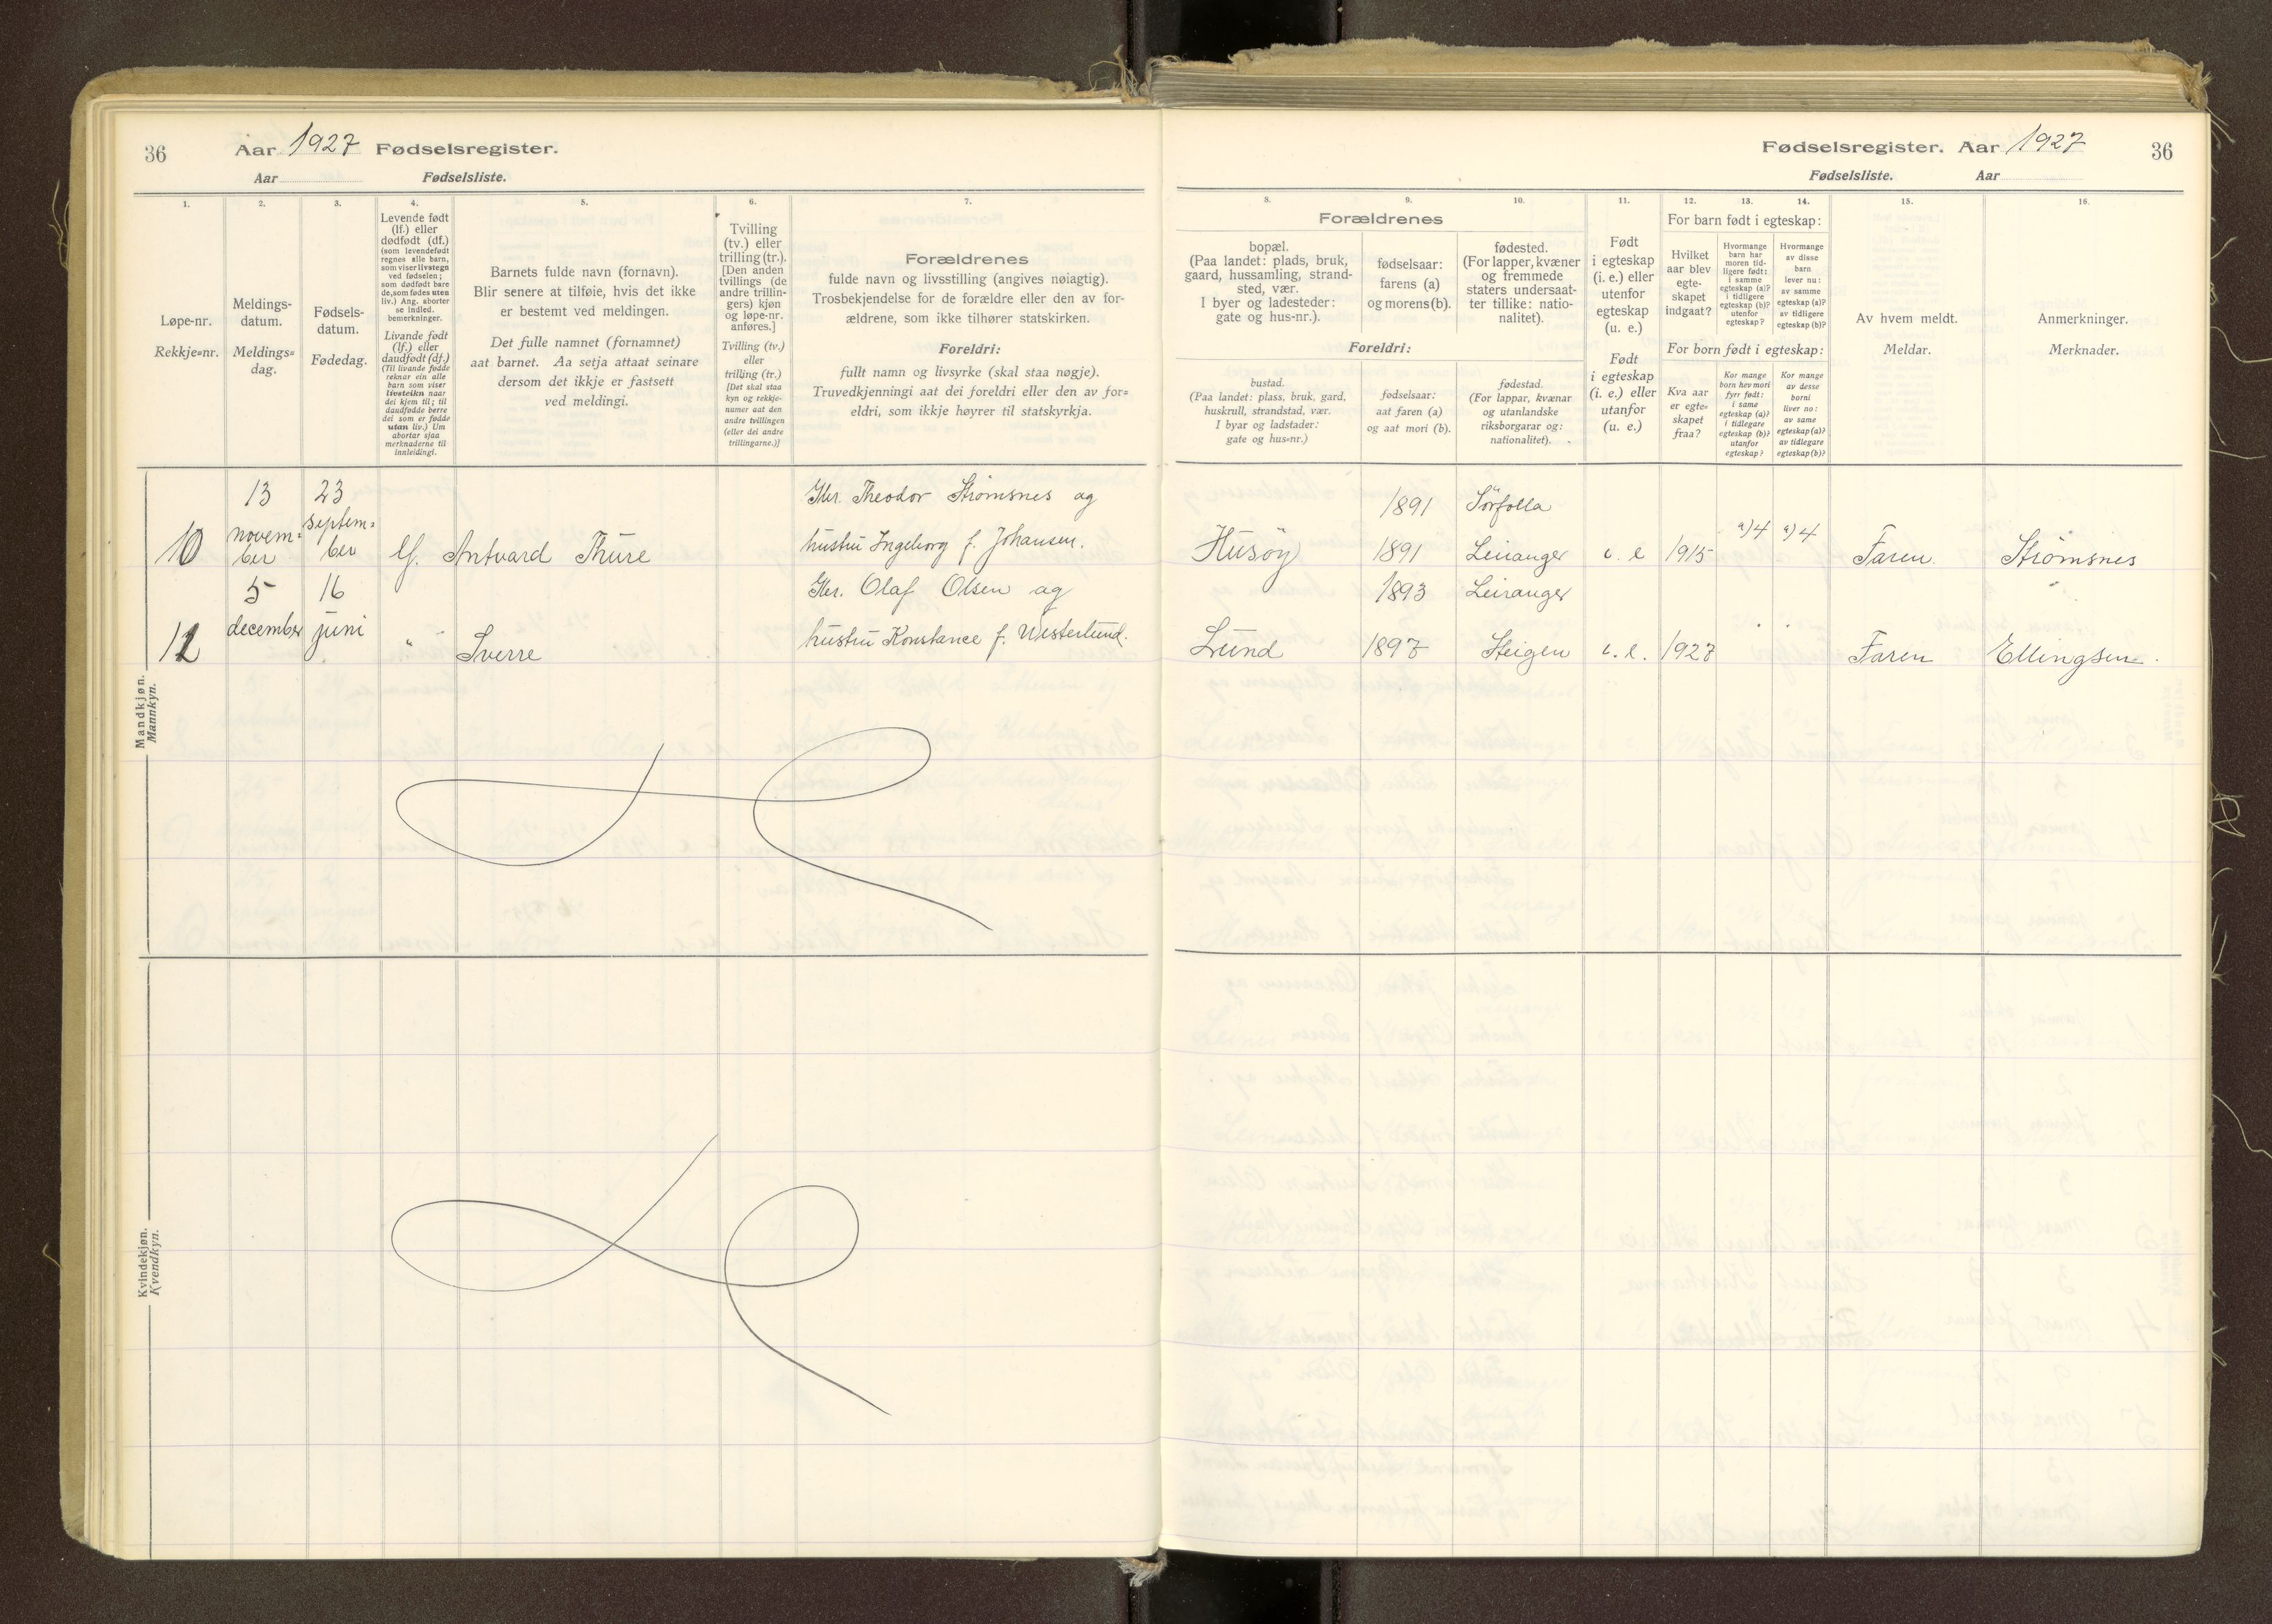 36 Aar 1927 Fødselsregister.
Aar Fødselsliste.
1. 2. 3. 4. 5. 6. 7.
Løpe-nr.
Rekkje=nr.
Meldings-
datum.
Meldings=
dag.
Fødsels-
datum.
Fødedag.
Levende født
(lf.) eller
dødfødt (df.)
(som levendefødt
regnes alle barn,
som viser livstegn
ved fødselen;
som dødfødt bare
de, som fødes uten
liv.) Ang. aborter
se indled.
bemerkninger.
Livande født
(lf.) eller
daudfødt (df.)
(Til livande fødde
reknar ein alle
barn som viser
livsteikn naar
dei kjem til; til
daudfødde berre
dei som er fødde
utan liv.) Um
abortar sjaa
merknaderne til
innleidingi.
Barnets fulde navn (fornavn).
Blir senere at tilføie, hvis det ikke
er bestemt ved meldingen.
Det fulle namnet (fornamnet)
aat barnet. Aa setja attaat seinare
dersom det ikkje er fastsett
ved meldingi.
Tvilling
(tv.) eller
trilling (tr.).
[Den anden
tvillings (de
andre trillin-
gers) kjøn
og løpe-nr.
anføres.]
Tvilling (tv.)
eller
trilling (tr.)
[Det skal staa
kyn og rekkje-
numer aat den
andre tvillingen
(eller dei andre
trillingarne.)]
Forældrenes
fulde navn og livsstilling (angives nøiagtig).
Trosbekjendelse for de forældre eller den av for-
ældrene, som ikke tilhører statskirken.
Foreldri:
fullt namn og livsyrke (skal staa nøgje).
Truvedkjenningi aat dei foreldri eller den av for=
eldri, som ikkje høyrer til statskyrkja.
Mandkjøn.
Mannkyn.
13 23 Gbr. Theodor Strømsnes og
novem= septem=
10 ber ber lf. Antvard Thure hustru Ingeborg f. Johansen.
5 16 Gbr. Olaf Olsen og
december juni
11 " Sverre hustru Konstance f. Westerlund.
Kvindekjøn.
Kvendkyn.
Fødselsregister. Aar 1927 36
Fødselsliste. Aar
8. 9. 10. 11. 12. 13. 14. 15. 16.
Forældrenes
bopæl.
(Paa landet: plads, bruk,
gaard, hussamling, strand-
sted, vær.
I byer og ladesteder:
gate og hus-nr.).
fødselsaar:
farens (a)
og morens (b).
fødested.
(For lapper, kvæner
og fremmede
staters undersaat-
ter tillike: natio-
nalitet).
Foreldri:
bustad.
(Paa landet: plass, bruk, gard,
huskrull, strandstad, vær.
I byar og ladstader:
gate og hus=nr.)
fødselsaar:
aat faren (a)
og aat mori (b).
fødestad.
(For lappar, kvænar
og utanlandske
riksborgarar og:
nationalitet).
Født
i egteskap
(i. e.) eller
utenfor
egteskap
(u. e.)
Født
i egteskap
(i. e.) eller
utanfor
(u. e.)
For barn født i egteskap:
Hvilket
aar blev
egte-
skapet
indgaat?
Hvormange
barn har
moren tid-
ligere født:
i samme
egteskap (a)?
i tidligere
egteskap (b)?
utenfor
egteskap?
Hvormange
av disse
barn
lever nu:
av samme
egteskap (a)?
av tidligere
egteskap (b)?
For born født i egteskap:
Kva aar
er egte=
skapet
fraa?
Kor mange
born hev mori
fyrr født:
i same
egteskap (a)?
i tidlegare
egteskap (b)?
utanfor
egteskap?
Kor mange
av desse
borni
liver no:
av same
egteskap (a)?
av tidlegare
egteskap (b)?
Av hvem meldt.
Meldar.
Anmerkninger.
Merknader.
1891 Sörfolla
Husöy 1891 Leiranger i. e 1915 a)4 a)4 Faren. Strømsnes
1893 Leiranger
Lund 1897 Steigen i. e. 1927 Faren Ellingsen.